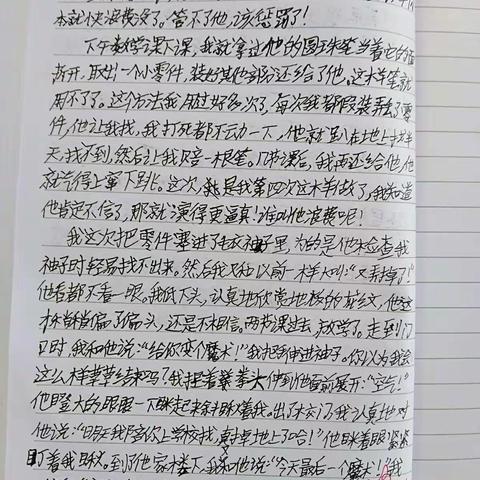 本就快浪费没了。管不了他,该惩罚了!
下午数学课下课,我就拿过他的圆珠笔当着它的面
拆开,取出一个小零件,装好其他部分还给了他。这木笔就
用不了了。这个方法我用过好多次了,每次我都假装弄丢了零
件,他让我找,我打死都不动一下,他就趴在地上找半
天,找不到,然后让我赔一根笔。几节课后,我再还给他,他
就气得上窜下跳。这次,我是我第四次这木羊做了,我知道
他肯定不信了,那就演得更逼真!谁叫他浪费呢!
我这次把零件塞进了衣袖子里,为的是他来检查我
袖子时轻易找不出来。然后我又和以前一样大叫:“又弄掉了!”
他看都不看一眼。我低下头,认真地欣赏地板的花纹,他这
才稍稍偏了偏头,还是不相信。两节课过去,放学了。走到门
口时,我和他说:“给你变个魔术!”我把手伸进袖子。你以为我会
这么样草草结束吗?我捏着紧拳头伸到他面前展开:“空气!”
他瞪大的眼睛一下眯起来斜盯着我。出了校门,我认真地对
他说:“明天我陪你上学校找,真掉地上了哈!”他眯着眼紧紧
盯着我
到了他家楼下,我和他说:“今天最后一个魔术!”我